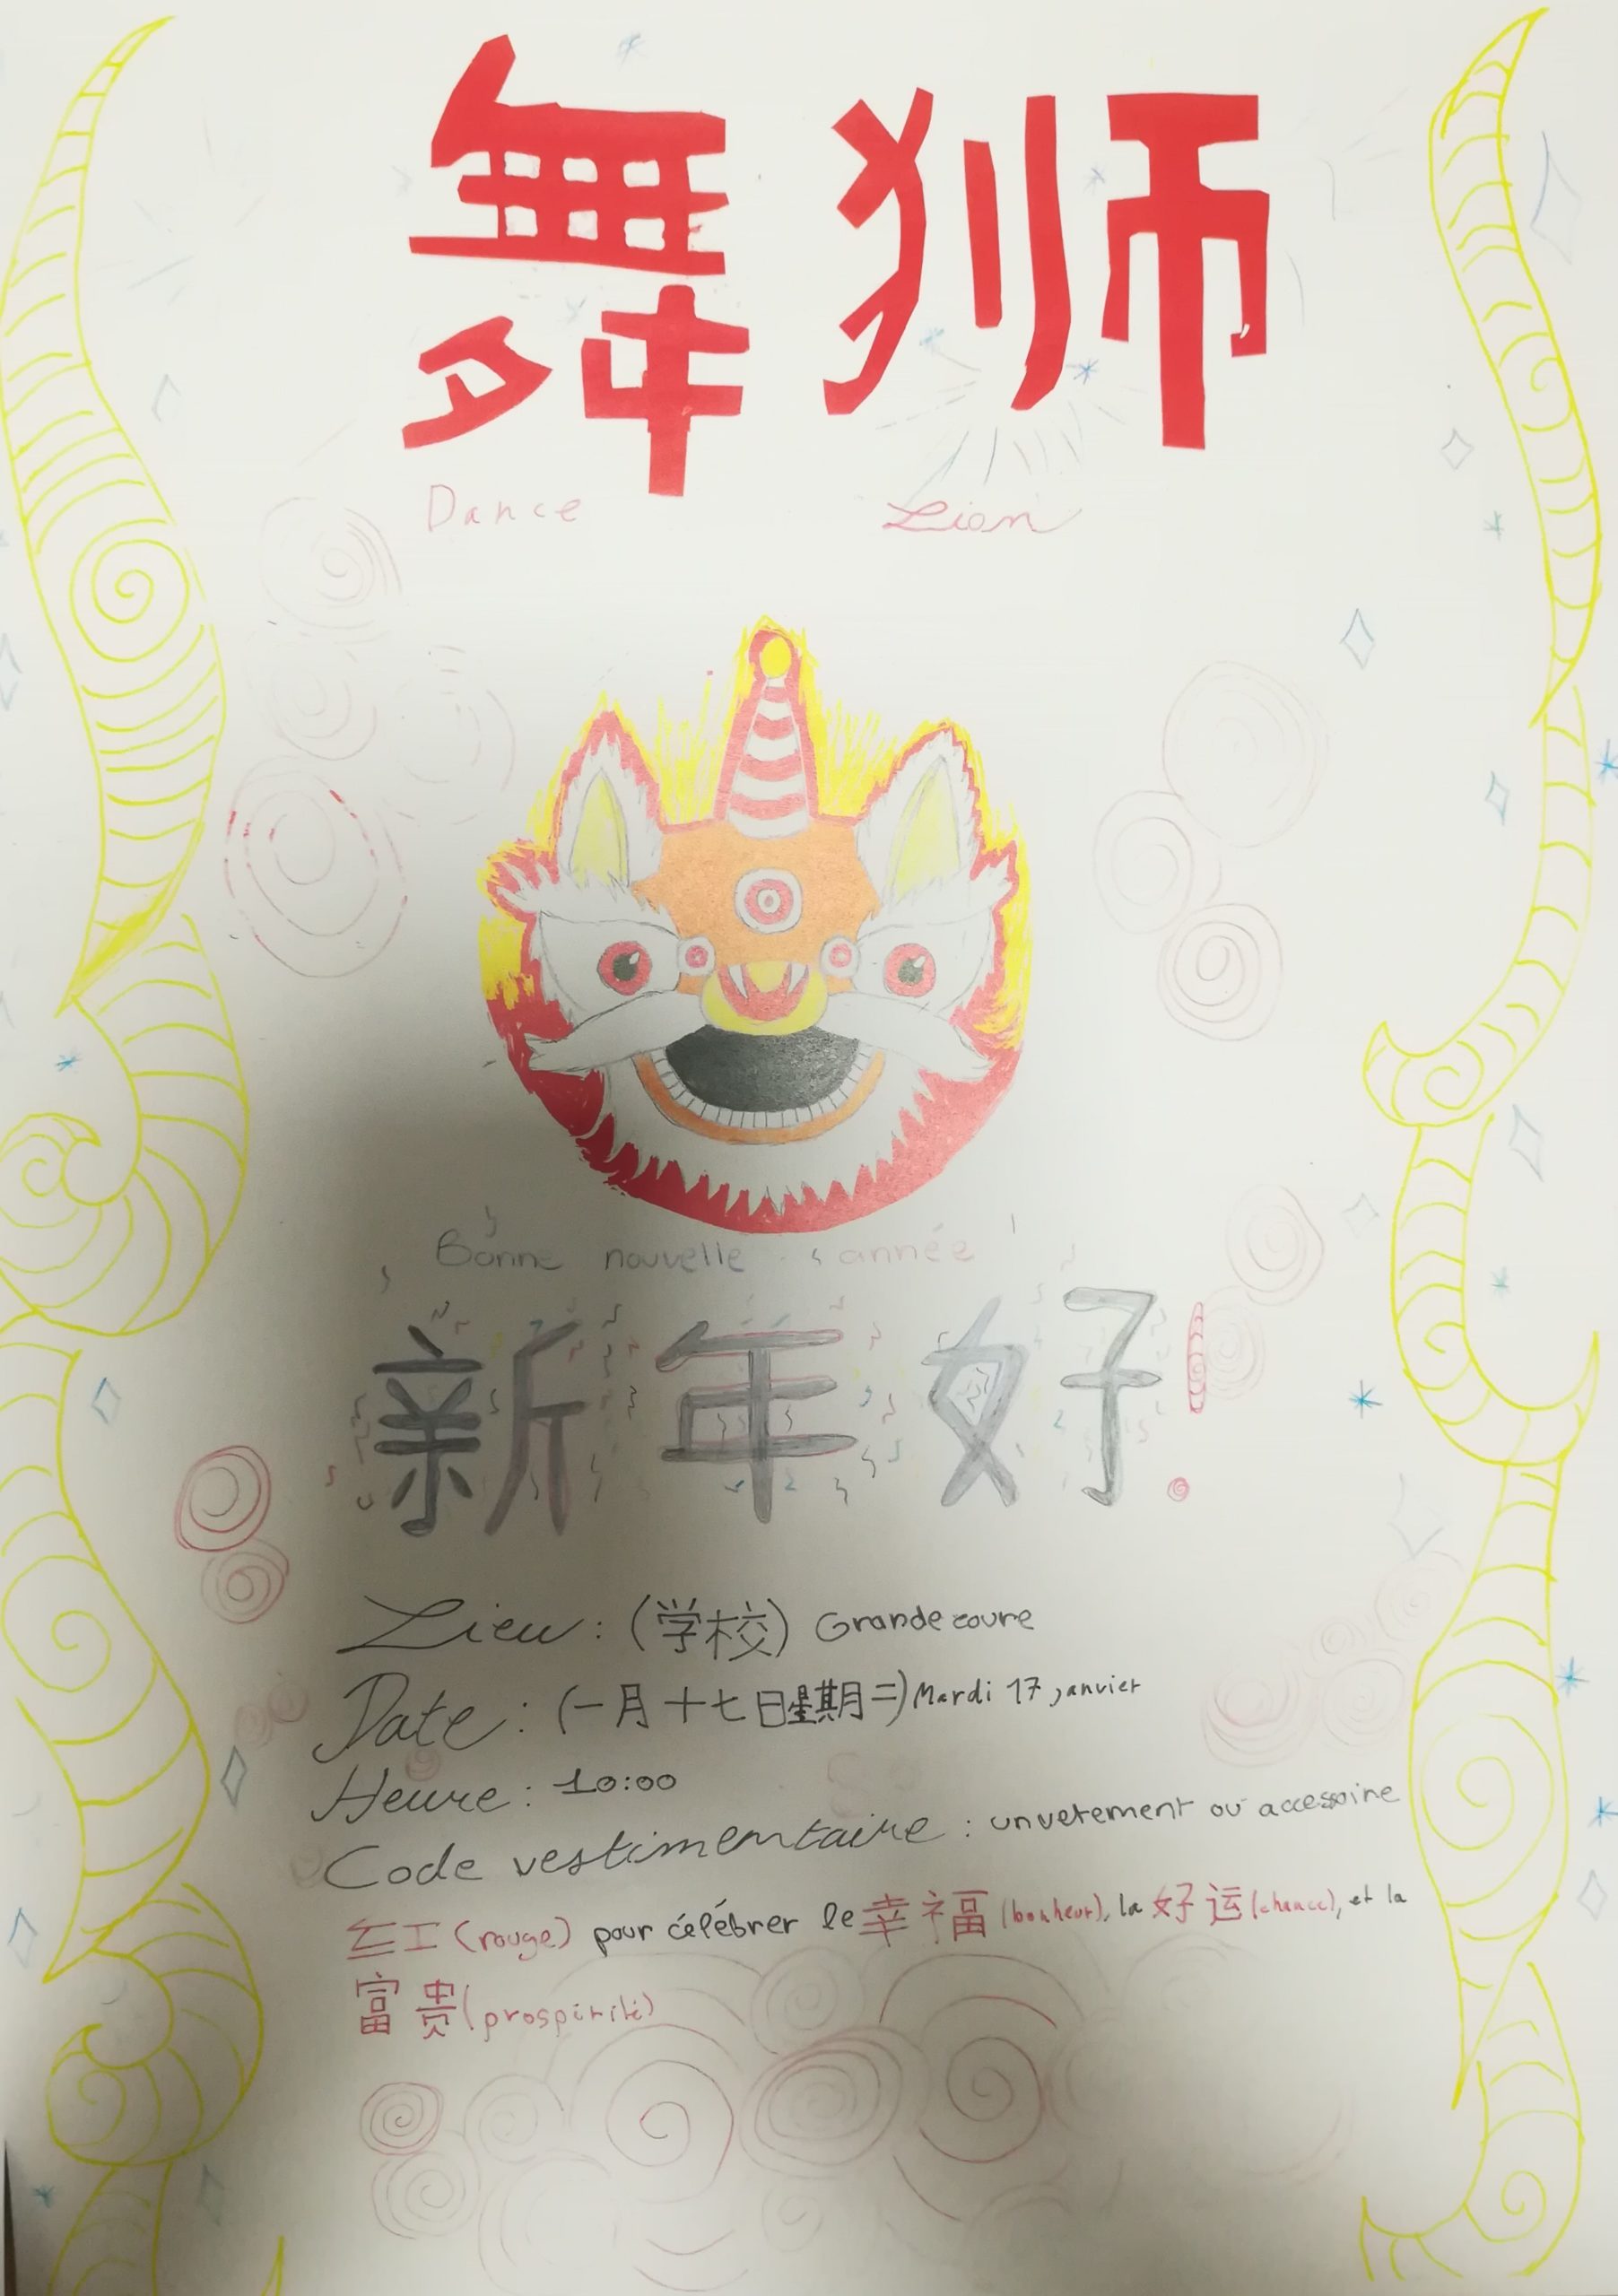 舞狮
Dance Lion
Bonne nouvelle année
新年好!
Lieu : (学校) Grande coure
Date : (一月十七日星期二) Mardi 17 janvier
Heure : 10:00
Code vestimentaire : un vetement ou accessoire
红 (rouge) pour célébrer le 幸福 (bonheur), la 好运 (chance), et la
富贵 (prospérité)